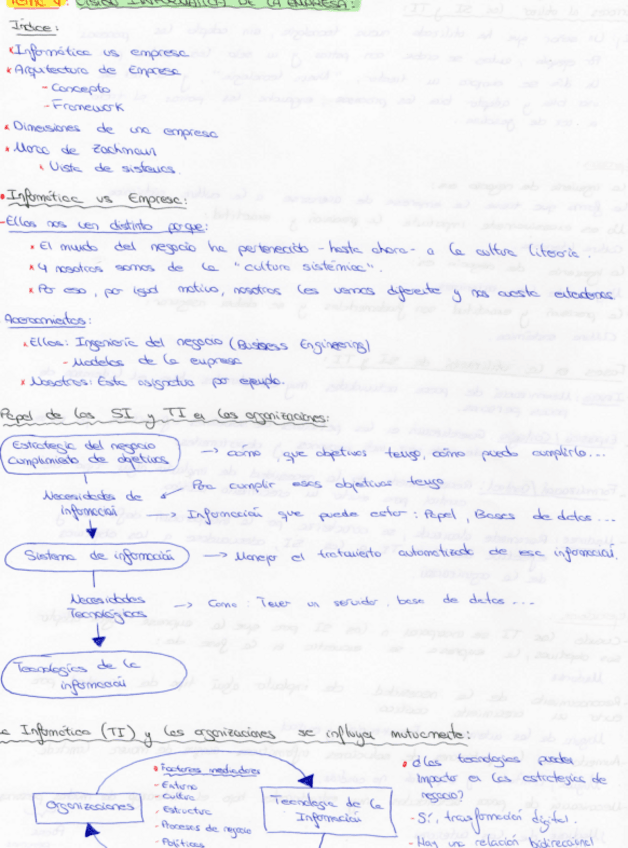 TEMA 4: VISIÓN INFORMÁTICA DE LA EMPRESA:
Índice:
* Informática vs empresa
* Arquitectura de Empresa
- Concepto
- Framework
* Dimensiones de una empresa
* Marco de Zachman
* Vista de sistemas.
• Informática vs Empresa:
- Ellos nos ven distinto porque:
* El mundo del negocio ha pertenecido - hasta ahora - a la cultura literaria.
* Y nosotros somos de la "cultura sistémica".
* Por eso, por igual motivo, nosotros les vemos diferente y nos cuesta entendernos
Acercamientos:
* Ellos: Ingeniería del negocio (Business Engineering)
- Modelos de la empresa
* Nosotros: Esta asignatura por ejemplo.
Papel de los SI y TI en las organizaciones:
Estrategia del negocio
Cumplimiento de objetivos
→ cómo, que objetivos tengo, cómo puedo cumplirlo...
Necesidades de
información
Para cumplir esos objetivos tengo
→ Información que puede estar: Papel, Bases de datos...
Sistema de información
→ Manejar el tratamiento automatizado de esa información.
Necesidades
Tecnológicas
→ Como: Tener un servidor, base de datos...
Tecnologías de la
información
La Informática (TI) y las organizaciones se influyen mutuamente:
Organizaciones
• Factores mediadores
- Entorno
- Cultura
- Estructura
- Procesos de negocio
- Políticas
Tecnología de la
Información
• ¿Las tecnologías pueden
impactar en las estrategias de
negocio?
- Sí, transformación digital.
- Hay una relación bidireccional